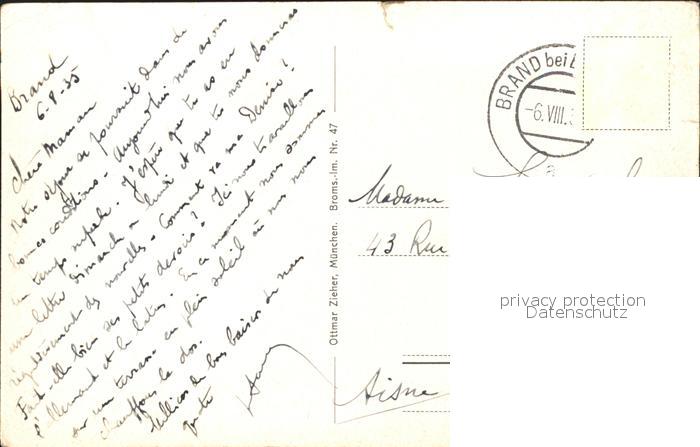 Brand
6-8-35
Chère Maman
Notre séjour se poursuit dans de
bonnes conditions - Aujourd'hui nous avons
un temps superbe. J'espère que tu as eu
une lettre dimanche ou lundi et que tu nous donneras
régulièrement des nouvelles - Comment va ma Denise?
Fait-elle bien ses petits devoirs? Ici nous travaillons
l'allemand et le latin. En ce moment nous sommes
sur une terrasse en plein soleil où nous nous
chauffons le dos.
Millions de bons baisers de nous
quatre
Ottmar Zieher, München. Broms.-Im. Nr. 47
BRAND bei
-6.VIII.3
a
Madame
43 Rue
Aisne
privacy protection
Datenschutz